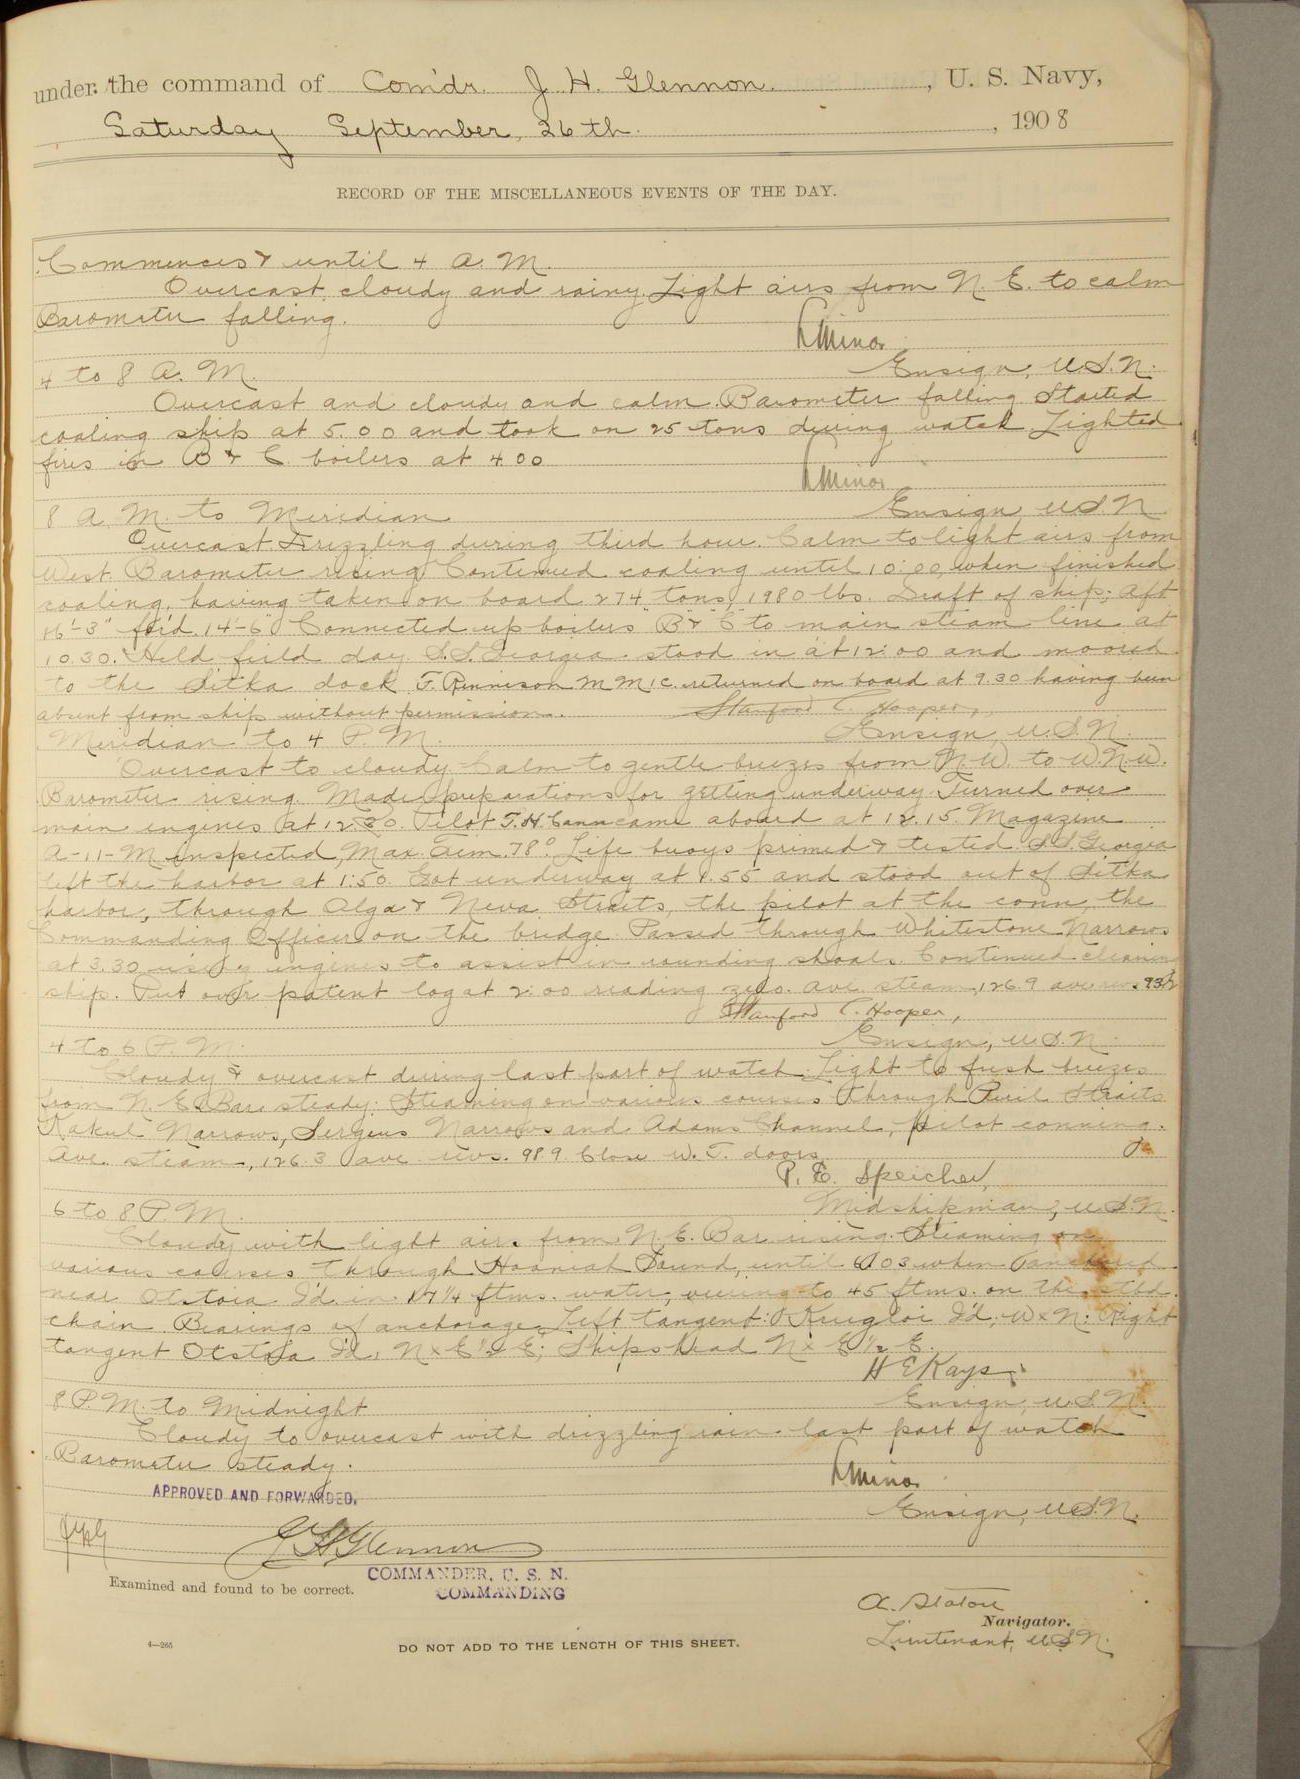 under the command of Com'dr. J. H. Glennon. , U. S. Navy,
Saturday September, 26th. , 1908
RECORD OF THE MISCELLANEOUS EVENTS OF THE DAY.
Commences & until 4 A. M.
Overcast, cloudy and rainy. Light airs from N. E. to calm
Barometer falling.
L Minor
Ensign, U.S.N.
4 to 8 A. M.
Overcast and cloudy and calm. Barometer falling. Started
coaling ship at 5.00 and took on 25 tons during watch. Lighted
fires in B & C boilers at 4.00
L Minor
Ensign U S N
8 A. M. to Meridian
Overcast. Drizzling during third hour. Calm to light airs from
West. Barometer rising. Continued coaling until 10:00, when finished
coaling, having taken on board 274 tons, 1980 lbs. Draft of ship; Aft
16'-3" for'd. 14'-6" Connected up boilers "B" & "C" to main steam line at
10.30. Held field day. S.S. Georgia stood in at 12:00 and moored
to the Sitka dock. F. Rennison M M 1 c. returned on board at 9.30 having been
absent from ship without permission.
Stanford C. Hooper,
Ensign, U.S.N.
Meridian to 4 P. M.
Overcast to cloudy. Calm to gentle breezes from N.W. to W.N.W.
Barometer rising. Made preparations for getting underway. Turned over
main engines at 12.30. Pilot came aboard at 12.15. Magazine
A-11-M inspected, Max. Tem. 78°. Life buoys primed & tested. S.S. Georgia
left the harbor at 1:50. Got underway at 1.55 and stood out of Sitka
harbor, through Olga & Neva Straits, the pilot at the conn, the
Commanding Officer on the bridge. Passed through Whitestone Narrows
at 3.30 using engines to assist in rounding shoals. Continued cleaning
ship. Put over patent log at 2:00 reading zero. Ave. steam, 126.9 ave rev.
Stanford C. Hooper,
Ensign, U.S.N.
4 to 6 P. M.
Cloudy & overcast during last part of watch. Light to fresh breezes
from N. E. Bar. steady. Steaming on various courses through Peril Straits
Kakul Narrows, Sergeus Narrows and Adams Channel, pilot conning.
Ave. steam, 126.3 ave. revs. 98.9 Close W. T. doors.
P. E. Speicher,
Midshipman, U.S.N.
6 to 8 P. M.
Cloudy with light airs from N. E. Bar. rising. Steaming on
various courses through Hooniah Sound, until when anchored
near Otstoia I'd. in 17¼ ftms. water, veering to 45 ftms. on the stbd.
chain. Bearings of anchorage. Left tangent: Krugloi I'd, W x N; Right
tangent Otstoia I'd, N x E ½ E; Ships head N x E ½ E.
H E Kays
Ensign, U.S.N.
8 P. M. to Midnight
Cloudy to overcast with drizzling rain last part of watch
Barometer steady.
L Minor
Ensign, U.S.N.
APPROVED AND FORWARDED.
J H Glennon
COMMANDER, U. S. N.
COMMANDING
Examined and found to be correct.
A. Staton
Navigator.
Lieutenant, U.S.N.
4—265
DO NOT ADD TO THE LENGTH OF THIS SHEET.